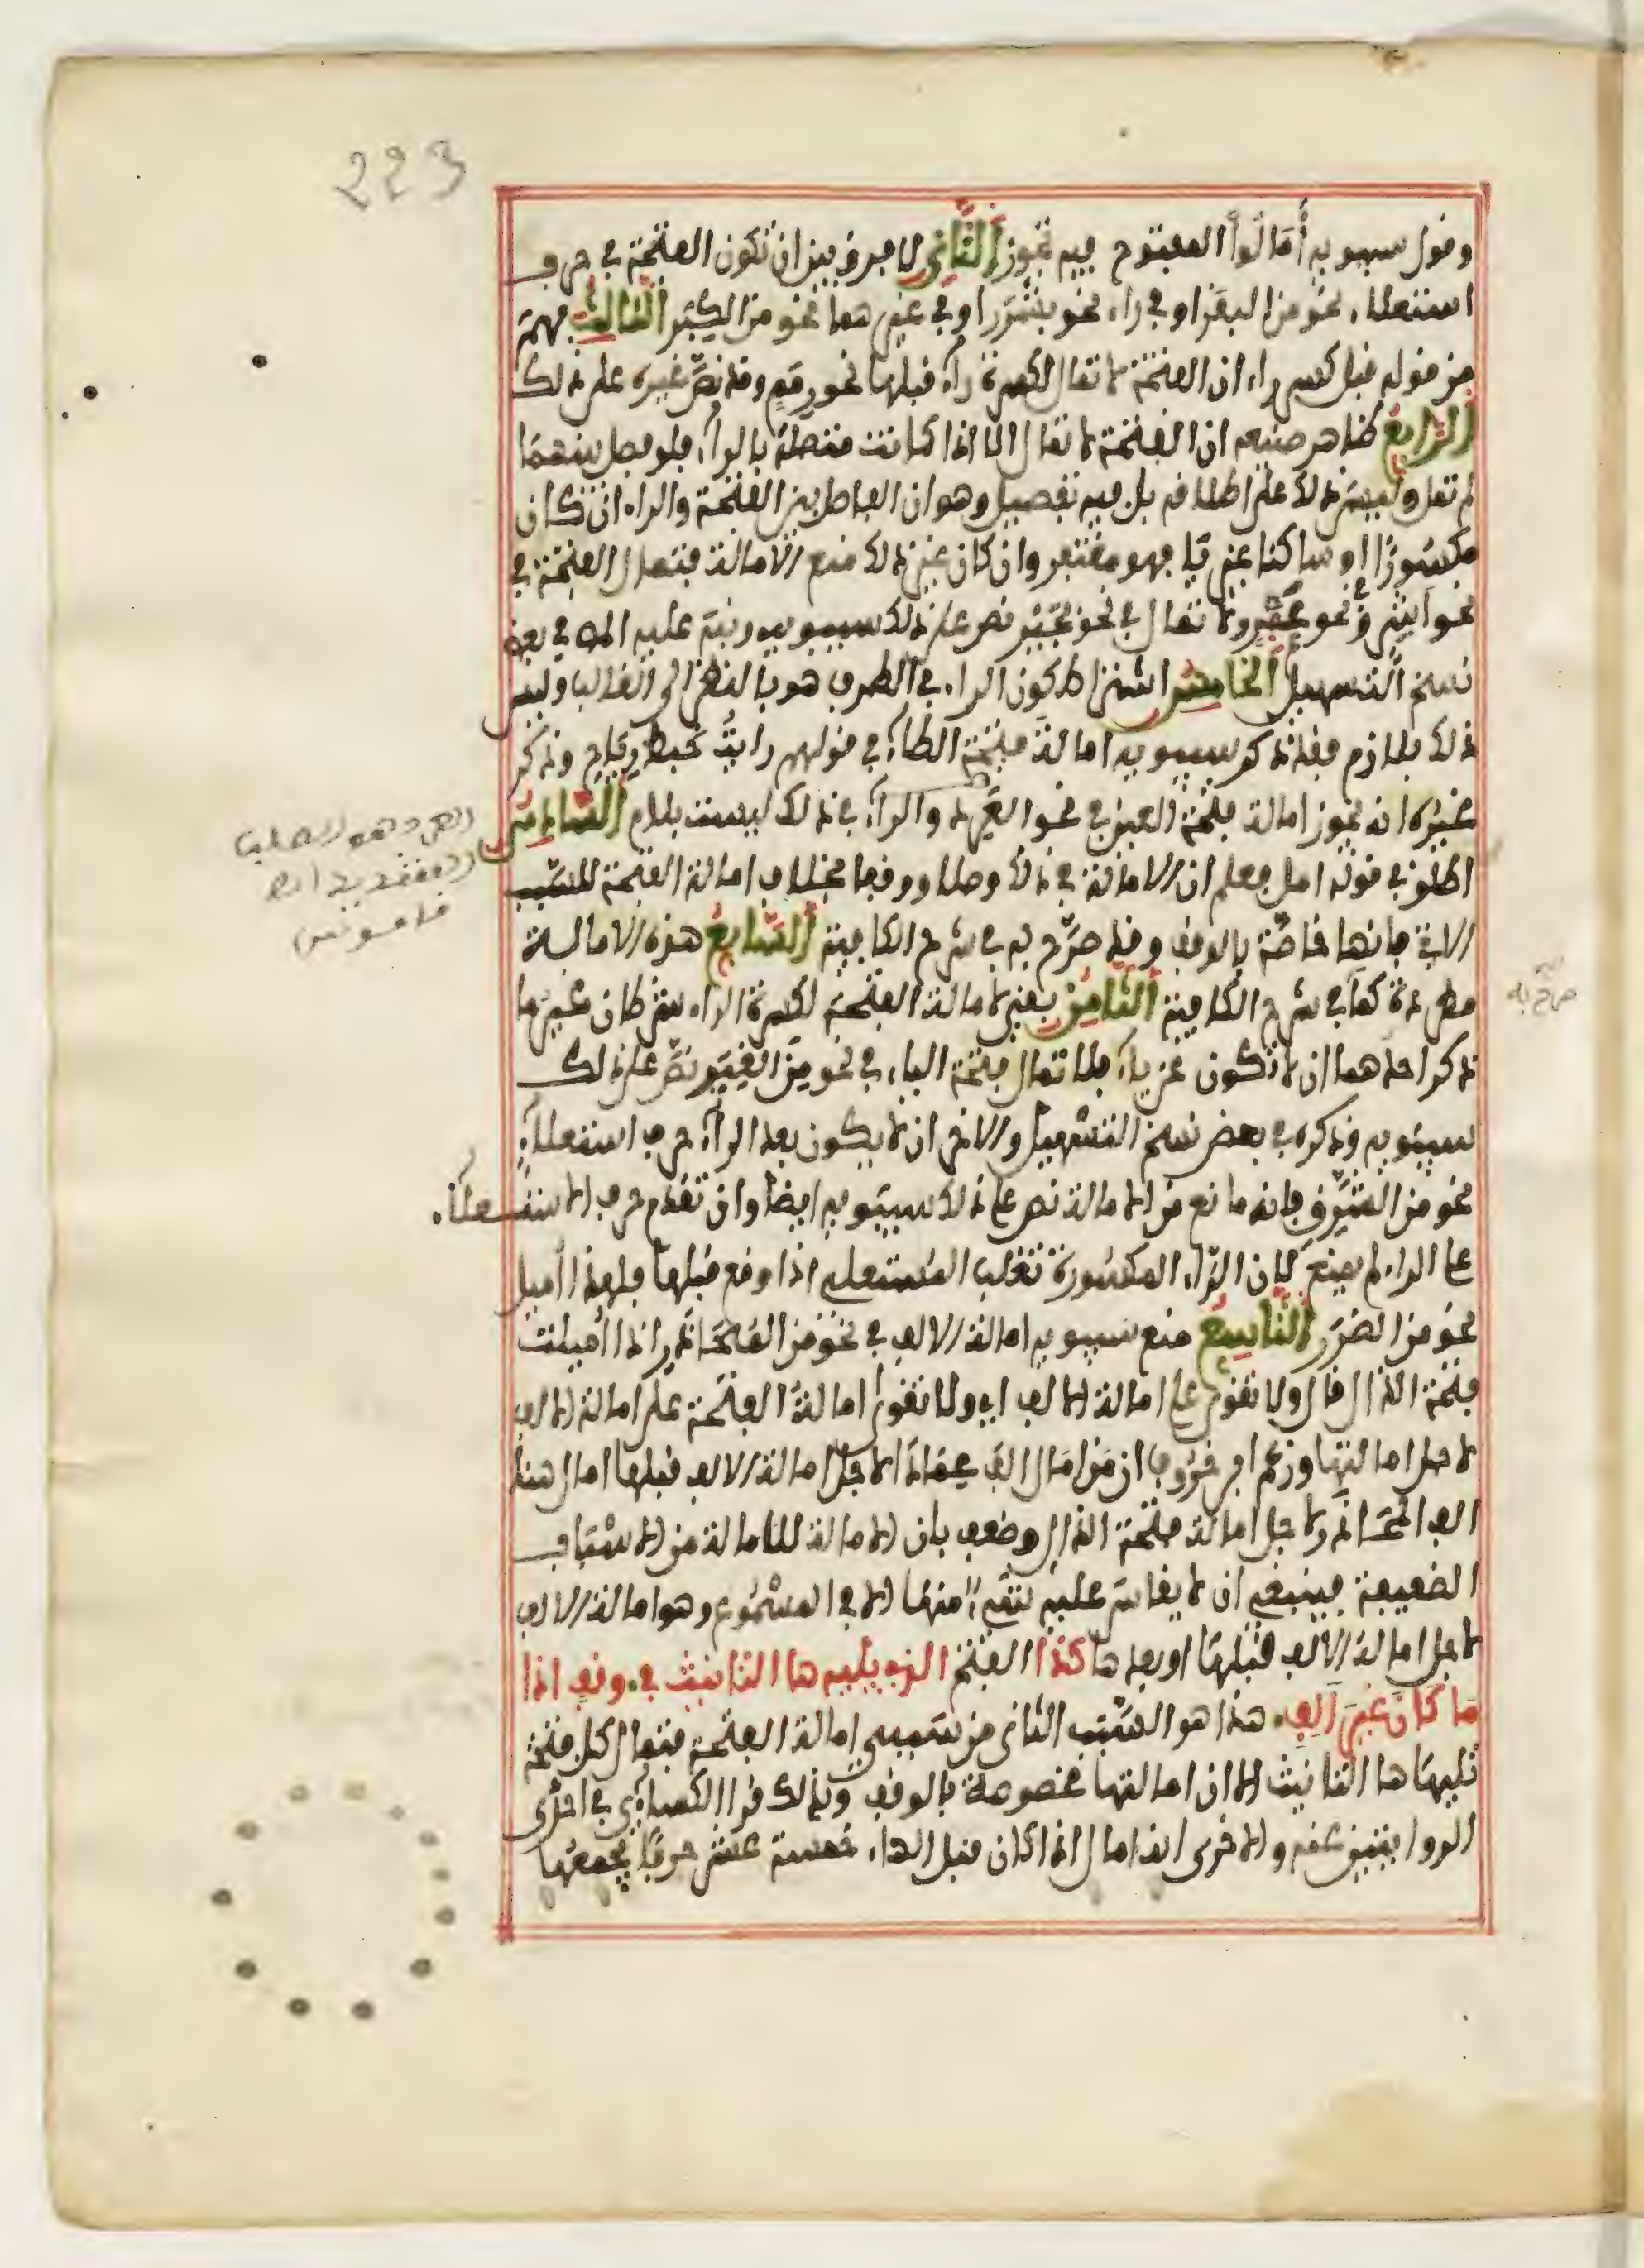 223
وقول سيبويه أمالوا المفتوح فيه تجوز الثاني لا فرق بين ان تكون الفتحة في حرف
استعلاء نحو من البقر او في راء نحو بشرر او في غيرهما نحو من الكبر الثالث فهم
من قوله قبل كسر راء ان الفتحة لا تمال لكسرة راء قبلها نحو رمم وقد نص غيره على ذلك
الرابع ظاهر صنيعه ان الفتحة لا تمال الا اذا كانت متصلة بالراء فلو فصل بينهما
لم تمل وليس ذلك على اطلاقه بل فيه تفصيل وهو ان الفاصل بين الفتحة والراء ان كان
مكسورا او ساكنا غير ياء فهو مغتفر وان كان غير ذلك منع الامالة فتمال الفتحة في
نحو اشر ونحو عمرو لا تمال في نحو بجير نص على ذلك سيبويه ونبه عليه المص في بعض
نسخ التسهيل الخامس اشتراط كون الراء في الطرف هو بالنظر الى الغالب وليس
ذلك بلازم فقد ذكر سيبويه امالة فتحة الطاء في قولهم رايت خبط رياح وذكر
غيره انه تجوز امالة فتحة العين في نحو العرد والراء في ذلك ليست بلام السادس
اطلق في قوله امل فعلم ان الامالة في ذلك وصلا ووقفا بخلاف امالة الفتحة للسبب
الاتي فانها خاصة بالوقف وقد صرح به في شرح الكافية السابع هذه الامالة
مطردة كما في شرح الكافية الثامن بقي لامالة الفتحة لكسرة الراء شرطان غير ما
ذكر احدهما ان لا تكون غير ياء فلا تمال فتحة الياء في نحو من الغير نص على ذلك
سيبويه وذكره في بعض نسخ التسهيل والاخر ان لا يكون بعد الراء حرف استعلاء
نحو من الشرق فانه مانع من الامالة نص على ذلك سيبويه ايضا وان تقدم حرف الاستعلاء
على الراء لم يمنع لان الراء المكسورة تغلب المستعلي اذا وقع قبلها فلهذا أميل
نحو من الضرر التاسع منع سيبويه امالة الالف في نحو من المحاذر اذا أميلت
فتحة الذال قال ولا تقوى على امالة الالف اي ولا تقوى امالة الفتحة على امالة الالف
لاجل امالتها وزعم ابن خروف ان من امال الف عمادا لاجل امالة الالف قبلها امال هنا
الف المحاذر لاجل امالة فتحة الذال وضعف بان الامالة للامالة من الاسباب
الضعيفة فينبغي ان لا يقاس عليه شيء منها الا في المسموع وهو امالة الالف
لاجل امالة الالف قبلها او بعدها كذا الفتح الذي يليه ها التانيث في وقف اذا
ما كان غير الف هذا هو السبب الثاني من سببي امالة الفتحة فتمال كل فتحة
تليها ها التانيث الا ان امالتها مخصوصة بالوقف وبذلك قرا الكسائي في احدى
الروايتين عنه والاخرى انه امال اذا كان قبل الهاء خمسة عشر حرفا يجمعها